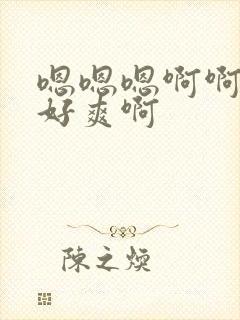 嗯嗯嗯啊啊
好爽啊
陳之煥